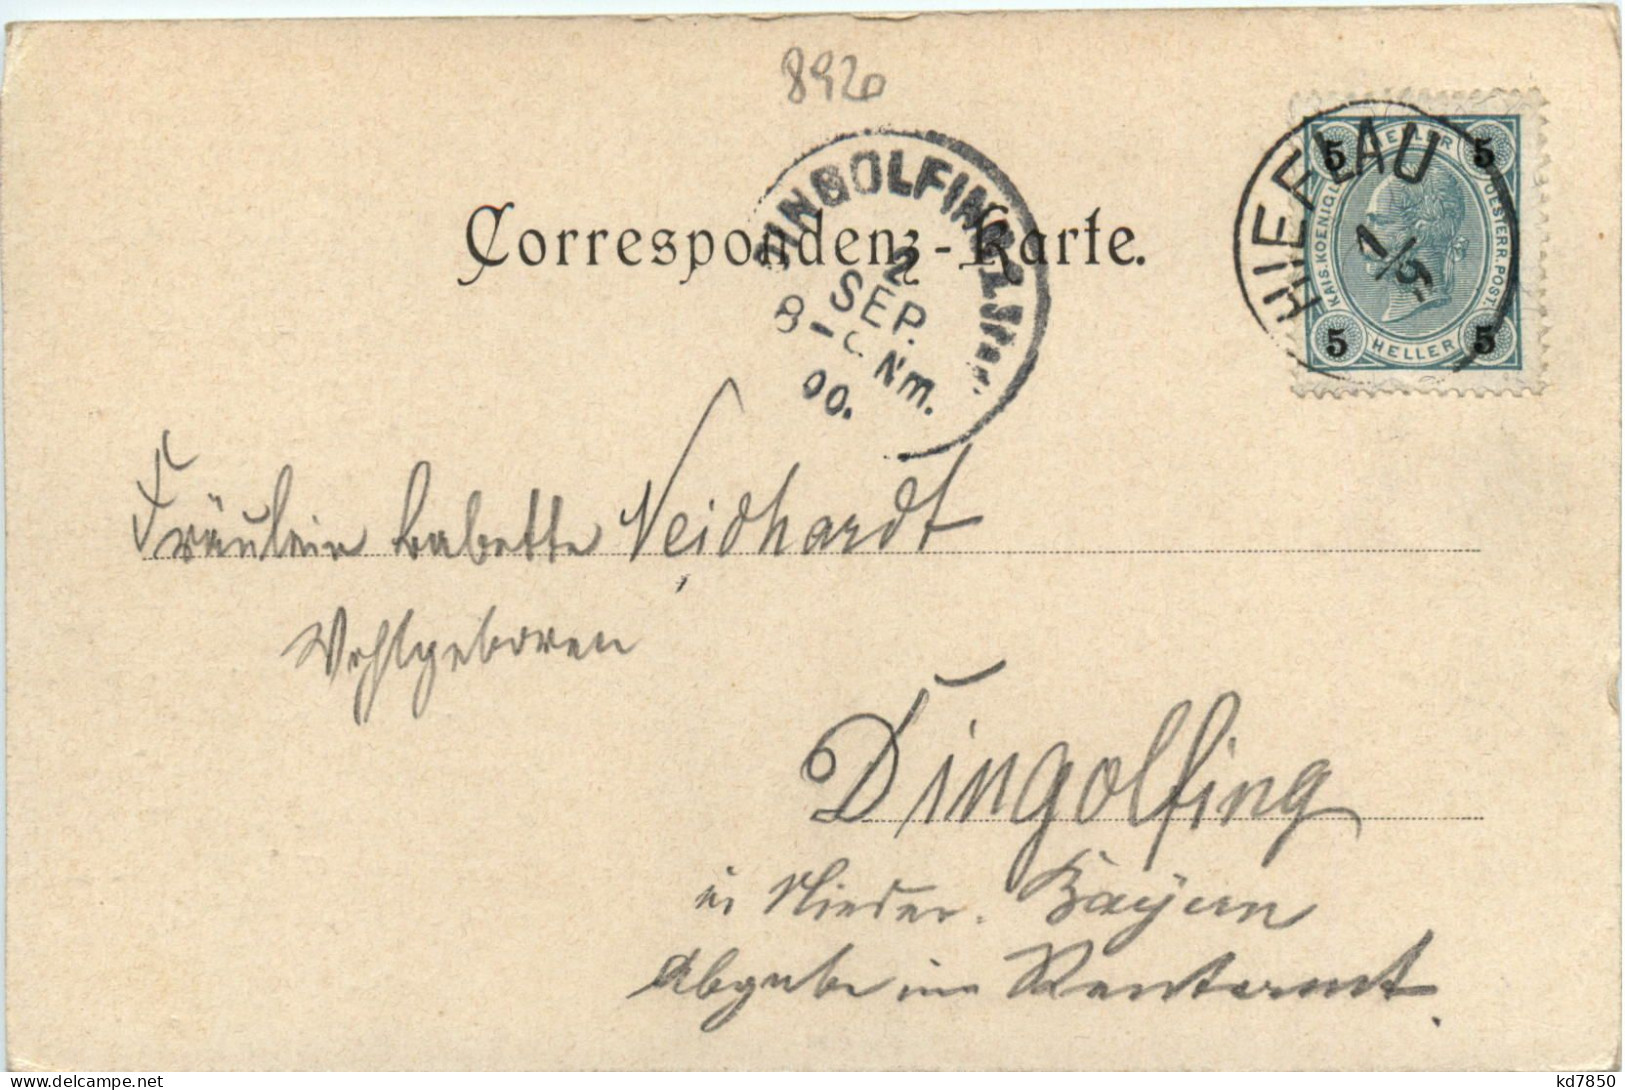 8920
Correspondenz-Karte.
DINGOLFING
2
SEP.
8-9 Nm.
00.
HIEFLAU
1/9
5 HELLER 5
KAIS. KOENIGL. OESTERR. POST.
5 HELLER 5
Fräulein Babette Neidhardt
Wohlgeboren
Dingolfing
in Nieder-Bayern
Abgabe im Rentamt.
delcampe.net
kd7850